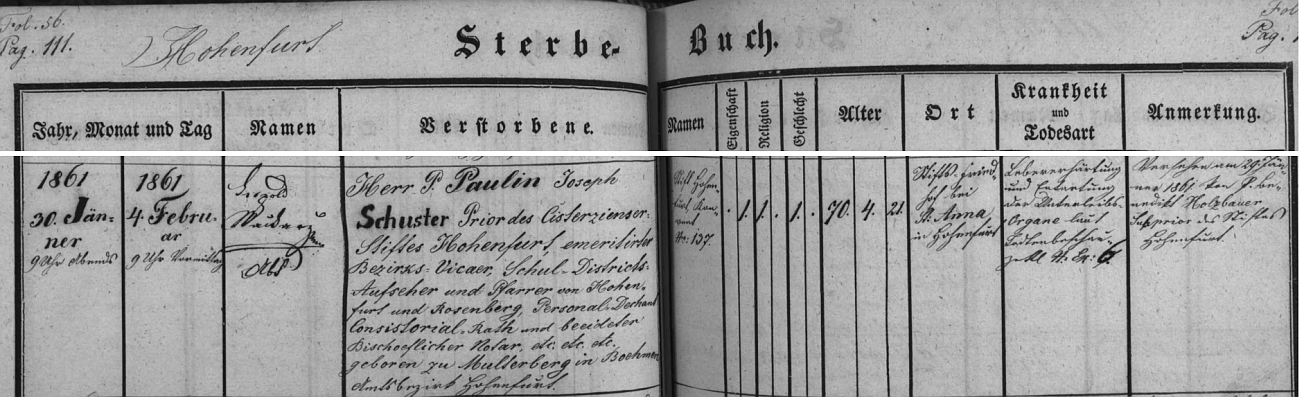 Fol. 56.
Pag. 111.
Hohenfurt
Sterbe-Buch.
Fol
Pag.
Jahr, Monat und Tag
Namen
Verstorbene.
Namen
Eigenschaft
Religion
Geschlecht
Alter
Ort
Krankheit
und
Todesart
Anmerkung.
1861
30. Jän-
ner
9 Uhr Abends
1861
4. Febru-
ar
9 Uhr Vormittag
Leopold
Abt
Herr P. Paulin Joseph
Schuster Prior des Cisterzienser-
Stiftes Hohenfurt, emeritirter
Bezirks-Vicaer, Schul-Districts-
Aufseher und Pfarrer von Hohen-
furt und Rosenberg, Personal-Dechant
Consistorial-Rath und beeideter
Bischoeflicher Notar, etc. etc. etc.
geboren zu Mutterberg in Boehmen
Amtsbezirk Hohenfurt.
Stift Hohen-
furt Kon-
vent
Nro: 137.
1. 1. 1. 70. 4. 21.
Stifts-Fried
hof bei
St. Anna
in Hohenfurt
Leberverhärtung
und Entartung
der Unterleibs-
Organe laut
Todtenbeschau-
zettl
Versehen am 29. Jän-
ner 1861 von P. Be-
nedikt Holzbauer
Subprior des Stiftes
Hohenfurt.